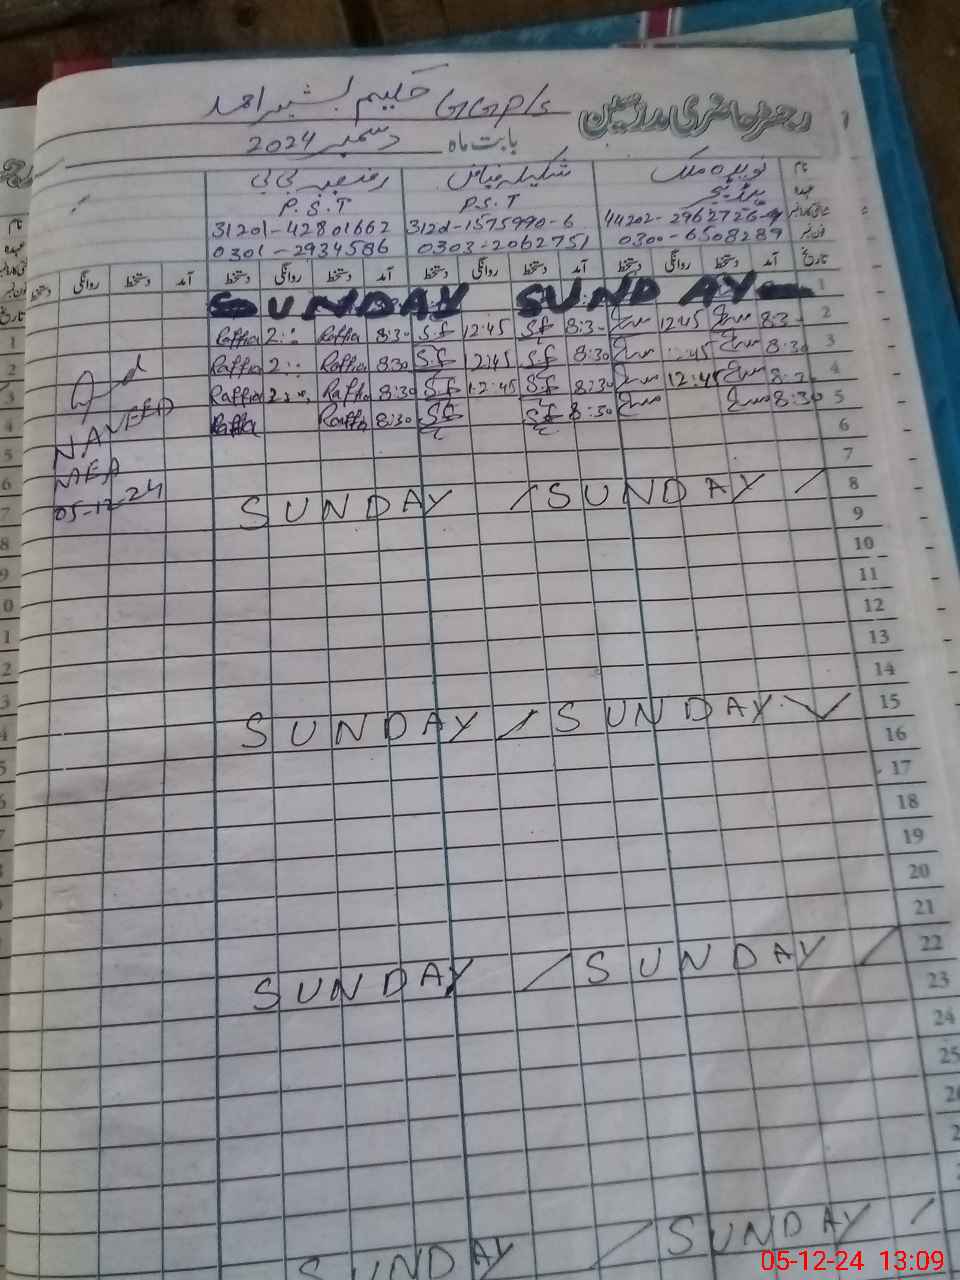 رجسٹر حاضری مدرسین GGPS حکیم بشیر احمد
بابت ماہ دسمبر 2024
نام
P.S.T P.S.T
44202-2962726-9 31201-42801662
0300-6508289 0303-2062751 0301-2934586
تاریخ آمد دستخط روانگی دستخط آمد دستخط روانگی دستخط آمد دستخط روانگی دستخط آمد دستخط روانگی دستخط
SUNDAY SUNDAY 1
Raffia 2:00 Raffia 8:30 S.f 12:45 Sf 8:30 12:45 8:30 2
Raffia 2:00 Raffia 8:30 S.f 12:45 Sf 8:30 12:45 8:30 3
Raffia 2:00 Raffia 8:30 Sf 12:45 Sf 8:30 12:45 8:30 4
Raffia Raffia 8:30 Sf Sf 8:30 8:30 5
6
7
SUNDAY SUNDAY 8
9
10
11
12
13
14
SUNDAY SUNDAY 15
16
17
18
19
20
21
SUNDAY SUNDAY 22
23
24
25
SUNDAY SUNDAY
NAVEED
MEA
05-12-24
05-12-24 13:09